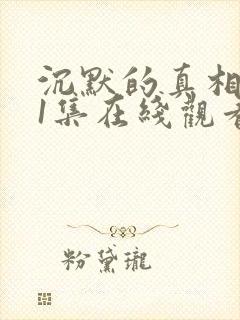 沉默的真相
1集在綫觀看
粉黛瓏